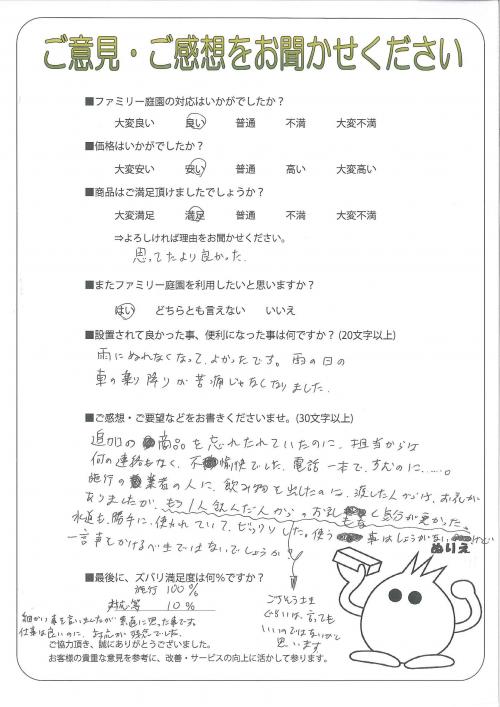 ご意見・ご感想をお聞かせください
■ファミリー庭園の対応はいかがでしたか？
大変良い 良い 普通 不満 大変不満
■価格はいかがでしたか？
大変安い 安い 普通 高い 大変高い
■商品はご満足頂けましたでしょうか？
大変満足 満足 普通 不満 大変不満
⇒よろしければ理由をお聞かせください。
思ってたより良かった.
■またファミリー庭園を利用したいと思いますか？
はい どちらとも言えない いいえ
■設置されて良かった事、便利になった事は何ですか？(20文字以上)
雨にぬれなくなって、よかったです。雨の日の
車の乗り降りが苦痛じゃなくなりました.
■ご感想・ご要望などをお書きくださいませ。(30文字以上)
追加の商品を忘れられていたのに、担当からは
何の連絡もなく、不愉快でした、電話一本で、すむのに……。
施行の業者の人に、飲み物を出したのに、渡した人からは、お礼が
ありましたが、もう1人飲んだ人からのお礼なく気分が悪かった。
水道も、勝手に、使われていて、ビックリした。使う事はしょうがない、けど
一言声をかけるべきではないでしょうか
ぬりえ
■最後に、ズバリ満足度は何％ですか？
施行 100％
対応等 10％
ごちそう土
ぐらいは、言っても
いいのではないかと
思います
細かい事を言いましたが素直に思った事です。
仕事は良いのに、対応が残念でした。
ご協力頂き、誠にありがとうございました。
お客様の貴重な意見を参考に、改善・サービスの向上に活かして参ります。